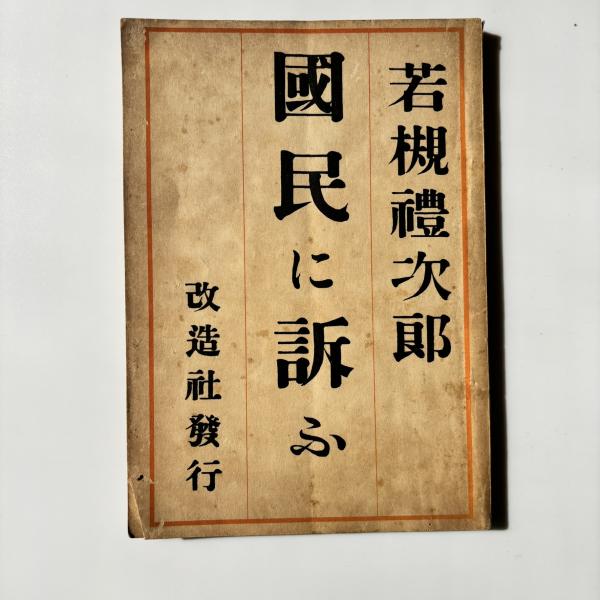 若槻禮次郞
國民に訴ふ
改造社發行